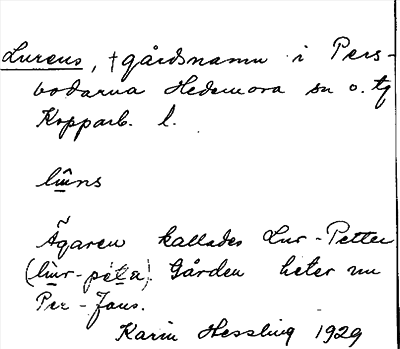 Lurens, †gårdsnamn i Pers-
bodarna Hedemora sn o. tg
Kopparb. l.
Ägaren kallades Lur-Petter
(lur-peta). Gården heter nu
Per-Jans.
Karin Hessling 1929